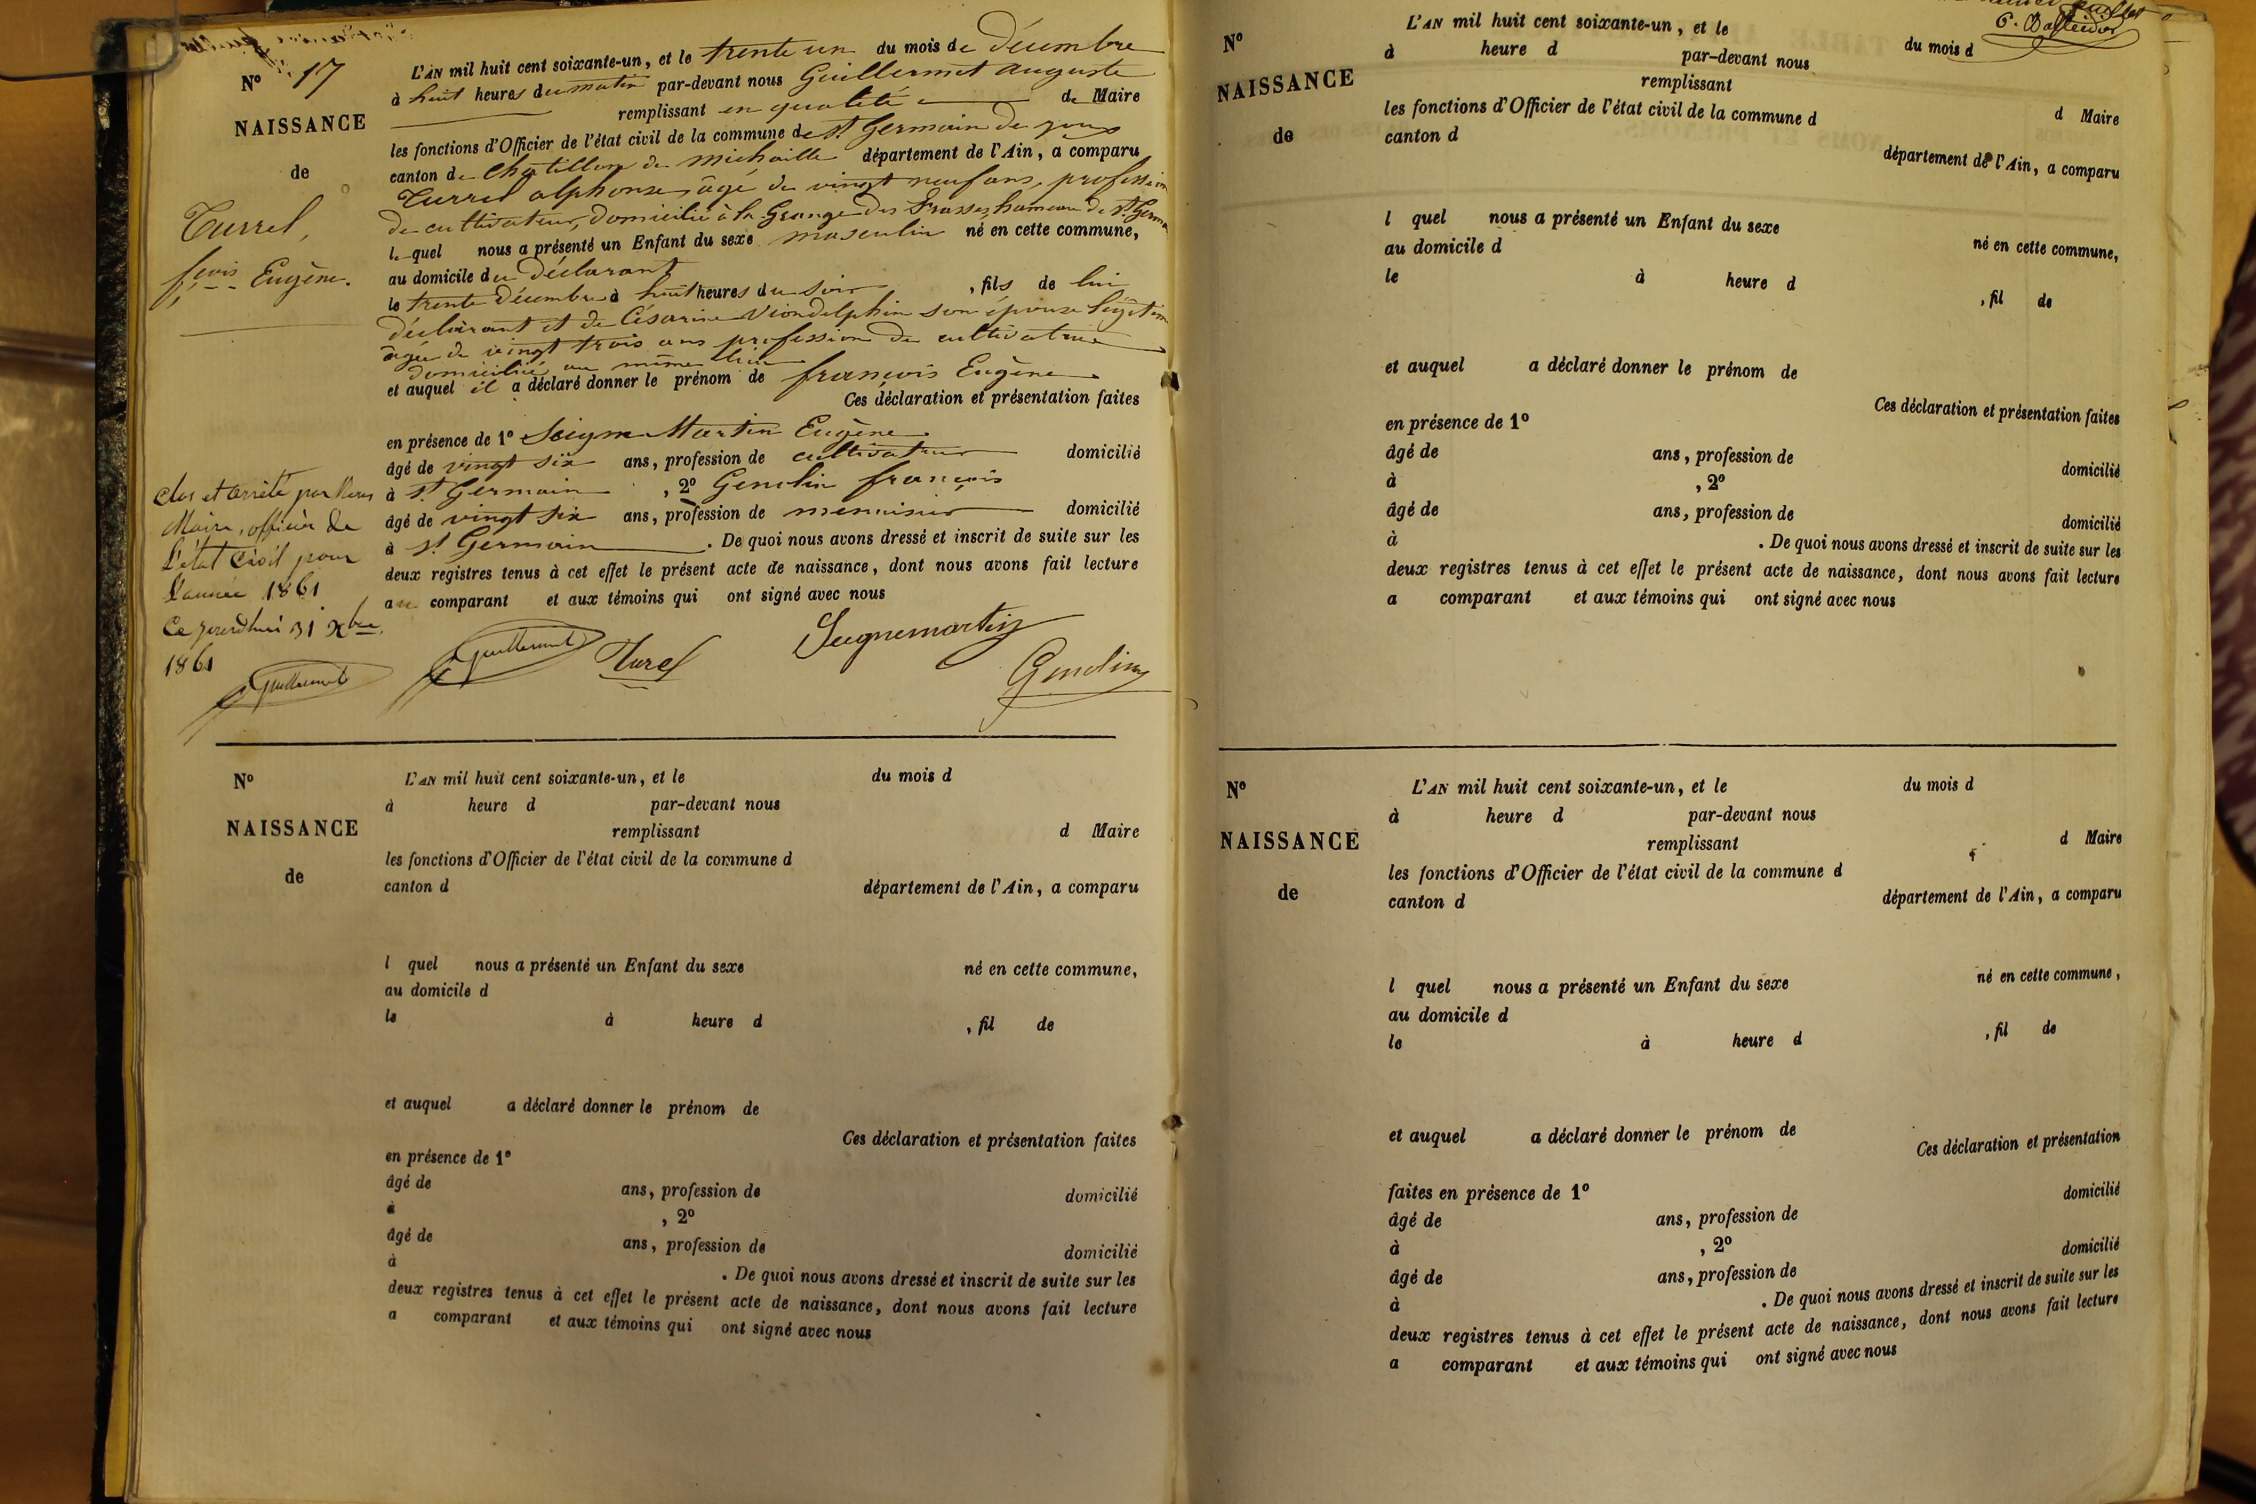 N° 17
NAISSANCE
de
Turrel,
f.çois Eugène.
L'AN mil huit cent soixante-un, et le trente un du mois de Décembre
à huit heures du matin par-devant nous Guillermet auguste
remplissant en qualité de Maire
les fonctions d'Officier de l'état civil de la commune de St Germain de joux
canton de Chatillon de michaille département de l'Ain, a comparu
Turrel alphonse âgé de vingt neuf ans, profession
de cultivateur, domicilié à la Grange des hameau de St Germain
le quel nous a présenté un Enfant du sexe masculin né en cette commune,
au domicile du Déclarant
le trente Décembre à huit heures du soir , fils de lui
déclarant et de Césarine Viondelphin son épouse légitime
âgée de vingt trois ans profession de cultivatrice
domiciliée au même lieu
et auquel il a déclaré donner le prénom de françois Eugène
Ces déclaration et présentation faites
en présence de 1° Seigne Martin Eugène
âgé de vingt six ans, profession de cultivateur domicilié
à St Germain , 2° Gendin françois
âgé de vingt six ans, profession de menuisier domicilié
à St Germain . De quoi nous avons dressé et inscrit de suite sur les
deux registres tenus à cet effet le présent acte de naissance, dont nous avons fait lecture
au comparant et aux témoins qui ont signé avec nous
Clos et arrêté par Nous
Maire, officier de
l'état civil pour
l'année 1861
Ce jourd'hui 31 Xbre
1861
Guillermet
Guillermet Turel Seignemartin Gendin
N°
NAISSANCE
de
L'AN mil huit cent soixante-un, et le du mois d
à heure d par-devant nous
remplissant d Maire
les fonctions d'Officier de l'état civil de la commune d
canton d département de l'Ain, a comparu
l quel nous a présenté un Enfant du sexe né en cette commune,
au domicile d
le à heure d , fil de
et auquel a déclaré donner le prénom de
Ces déclaration et présentation faites
en présence de 1°
âgé de ans, profession de domicilié
à , 2°
âgé de ans, profession de domicilié
à . De quoi nous avons dressé et inscrit de suite sur les
deux registres tenus à cet effet le présent acte de naissance, dont nous avons fait lecture
a comparant et aux témoins qui ont signé avec nous
N°
NAISSANCE
de
L'AN mil huit cent soixante-un, et le du mois d
à heure d par-devant nous
remplissant d Maire
les fonctions d'Officier de l'état civil de la commune d
canton d département de l'Ain, a comparu
l quel nous a présenté un Enfant du sexe né en cette commune,
au domicile d
le à heure d , fil de
et auquel a déclaré donner le prénom de
Ces déclaration et présentation faites
en présence de 1°
âgé de ans, profession de domicilié
à , 2°
âgé de ans, profession de domicilié
à . De quoi nous avons dressé et inscrit de suite sur les
deux registres tenus à cet effet le présent acte de naissance, dont nous avons fait lecture
a comparant et aux témoins qui ont signé avec nous
N°
NAISSANCE
de
L'AN mil huit cent soixante-un, et le du mois d
à heure d par-devant nous
remplissant d Maire
les fonctions d'Officier de l'état civil de la commune d
canton d département de l'Ain, a comparu
l quel nous a présenté un Enfant du sexe né en cette commune,
au domicile d
le à heure d , fil de
et auquel a déclaré donner le prénom de
Ces déclaration et présentation
faites en présence de 1° domicilié
âgé de ans, profession de
à , 2° domicilié
âgé de ans, profession de
à . De quoi nous avons dressé et inscrit de suite sur les
deux registres tenus à cet effet le présent acte de naissance, dont nous avons fait lecture
a comparant et aux témoins qui ont signé avec nous